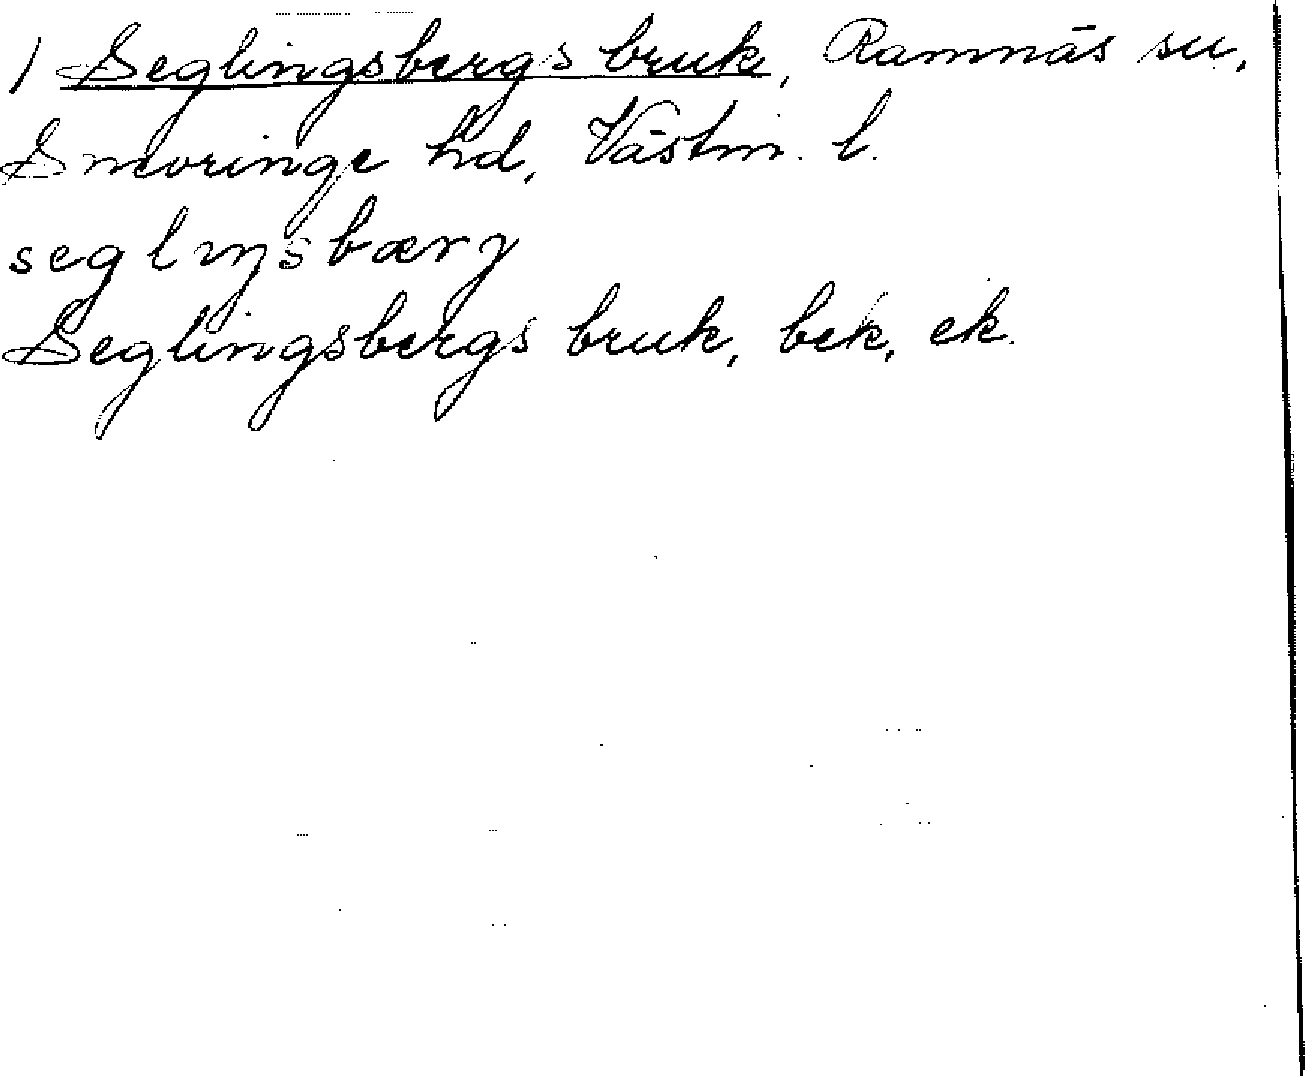 1 Seglingsbergs bruk, Ramnäs sn,
Snevringe hd, Västm. l.
seglıŋsbærj
Seglingsbergs bruk, bek, ek.